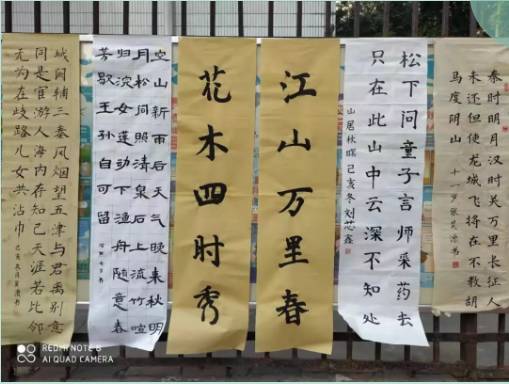 秦时明月汉时关万里长征人
未还但使龙城飞将在不教胡
马度阴山
十一岁张
松下问童子言师采药去
只在此山中云深不知处
山居秋暝 己亥冬刘芯鑫
江山万里春
花木四时秀
空山新雨后天气晚来秋明
月松间照清泉石上流竹喧
归浣女莲动下渔舟随意春
芳歇王孙自可留
城阙辅三秦风烟望五津与君离别意
同是宦游人海内存知己天涯若比邻
无为在歧路儿女共沾巾
REDMI NOTE 8
AI QUAD CAMERA